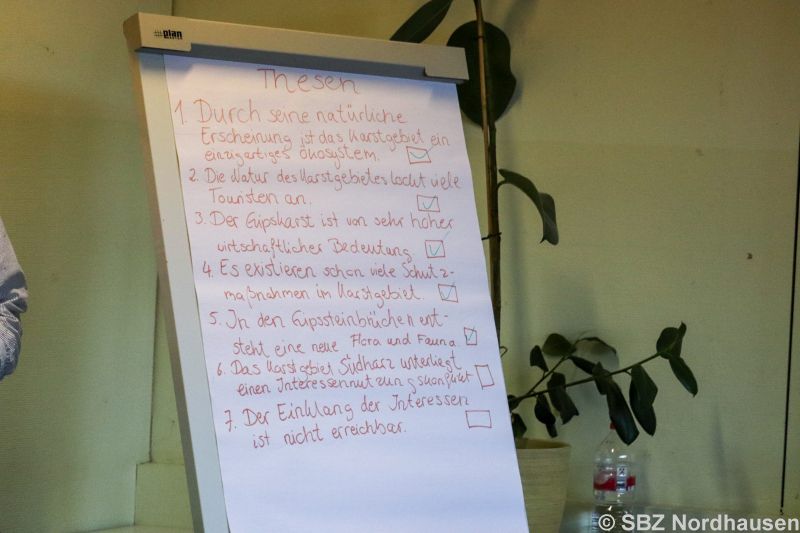 plan
Thesen
1. Durch seine natürliche
Erscheinung ist das Karstgebiet ein
einzigartiges Ökosystem.
2. Die Natur des Karstgebietes lockt viele
Touristen an.
3. Der Gipskarst ist von sehr hoher
wirtschaftlicher Bedeutung
4. Es existieren schon viele Schutz-
maßnahmen im Karstgebiet.
5. In den Gipssteinbrüchen ent-
steht eine neue Flora und Fauna
6. Das Karstgebiet Südharz unterliegt
einen Interessennutzungskonflikt
7. Der Einklang der Interessen
ist nicht erreichbar.
© SBZ Nordhausen